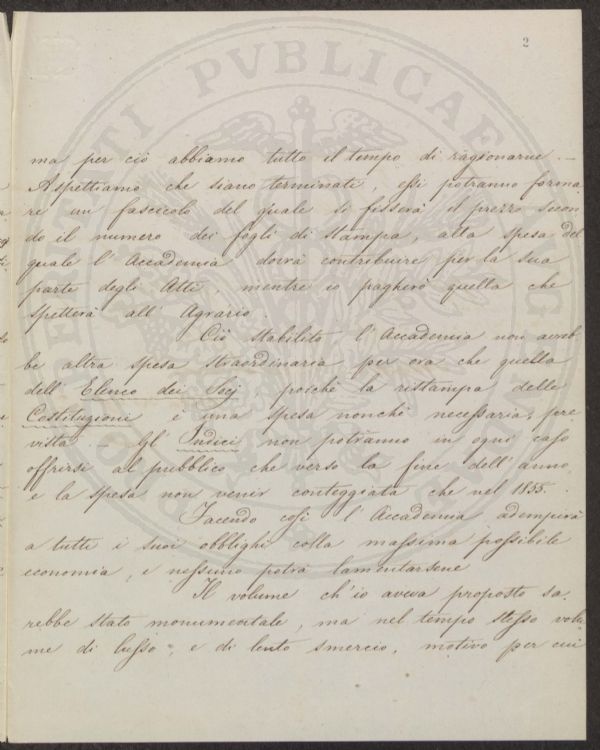 2
ma per ciò abbiamo tutto il tempo di ragionarne. —
Aspettiamo che siano terminate, essi potranno forma
re un fascicolo del quale si fisserà il prezzo secon
do il numero dei fogli di stampa, alla spesa del
quale l'Accademia dovrà contribuire per la sua
parte degli Atti, mentre io pagherò quella che
spetterà all'Agrario.
Ciò stabilito l'Accademia non avreb
be altra spesa straordinaria per ora che quella
dell'Elenco dei Socj, poichè la ristampa delle
Costituzioni è una spesa nonchè necessaria, pre
vista. — Gl'Indici non potranno in ogni caso
offrirsi al pubblico che verso la fine dell'anno,
e la spesa non venir conteggiata che nel 1855.
Facendo così l'Accademia adempirà
a tutti i suoi obblighi colla massima possibile
economia, e nessuno potrà lamentarsene
Il volume ch'io aveva proposto sa.
rebbe stato monumentale, ma nel tempo stesso volu
me di lusso, e di lento smercio, motivo per cui
PVBLICAE